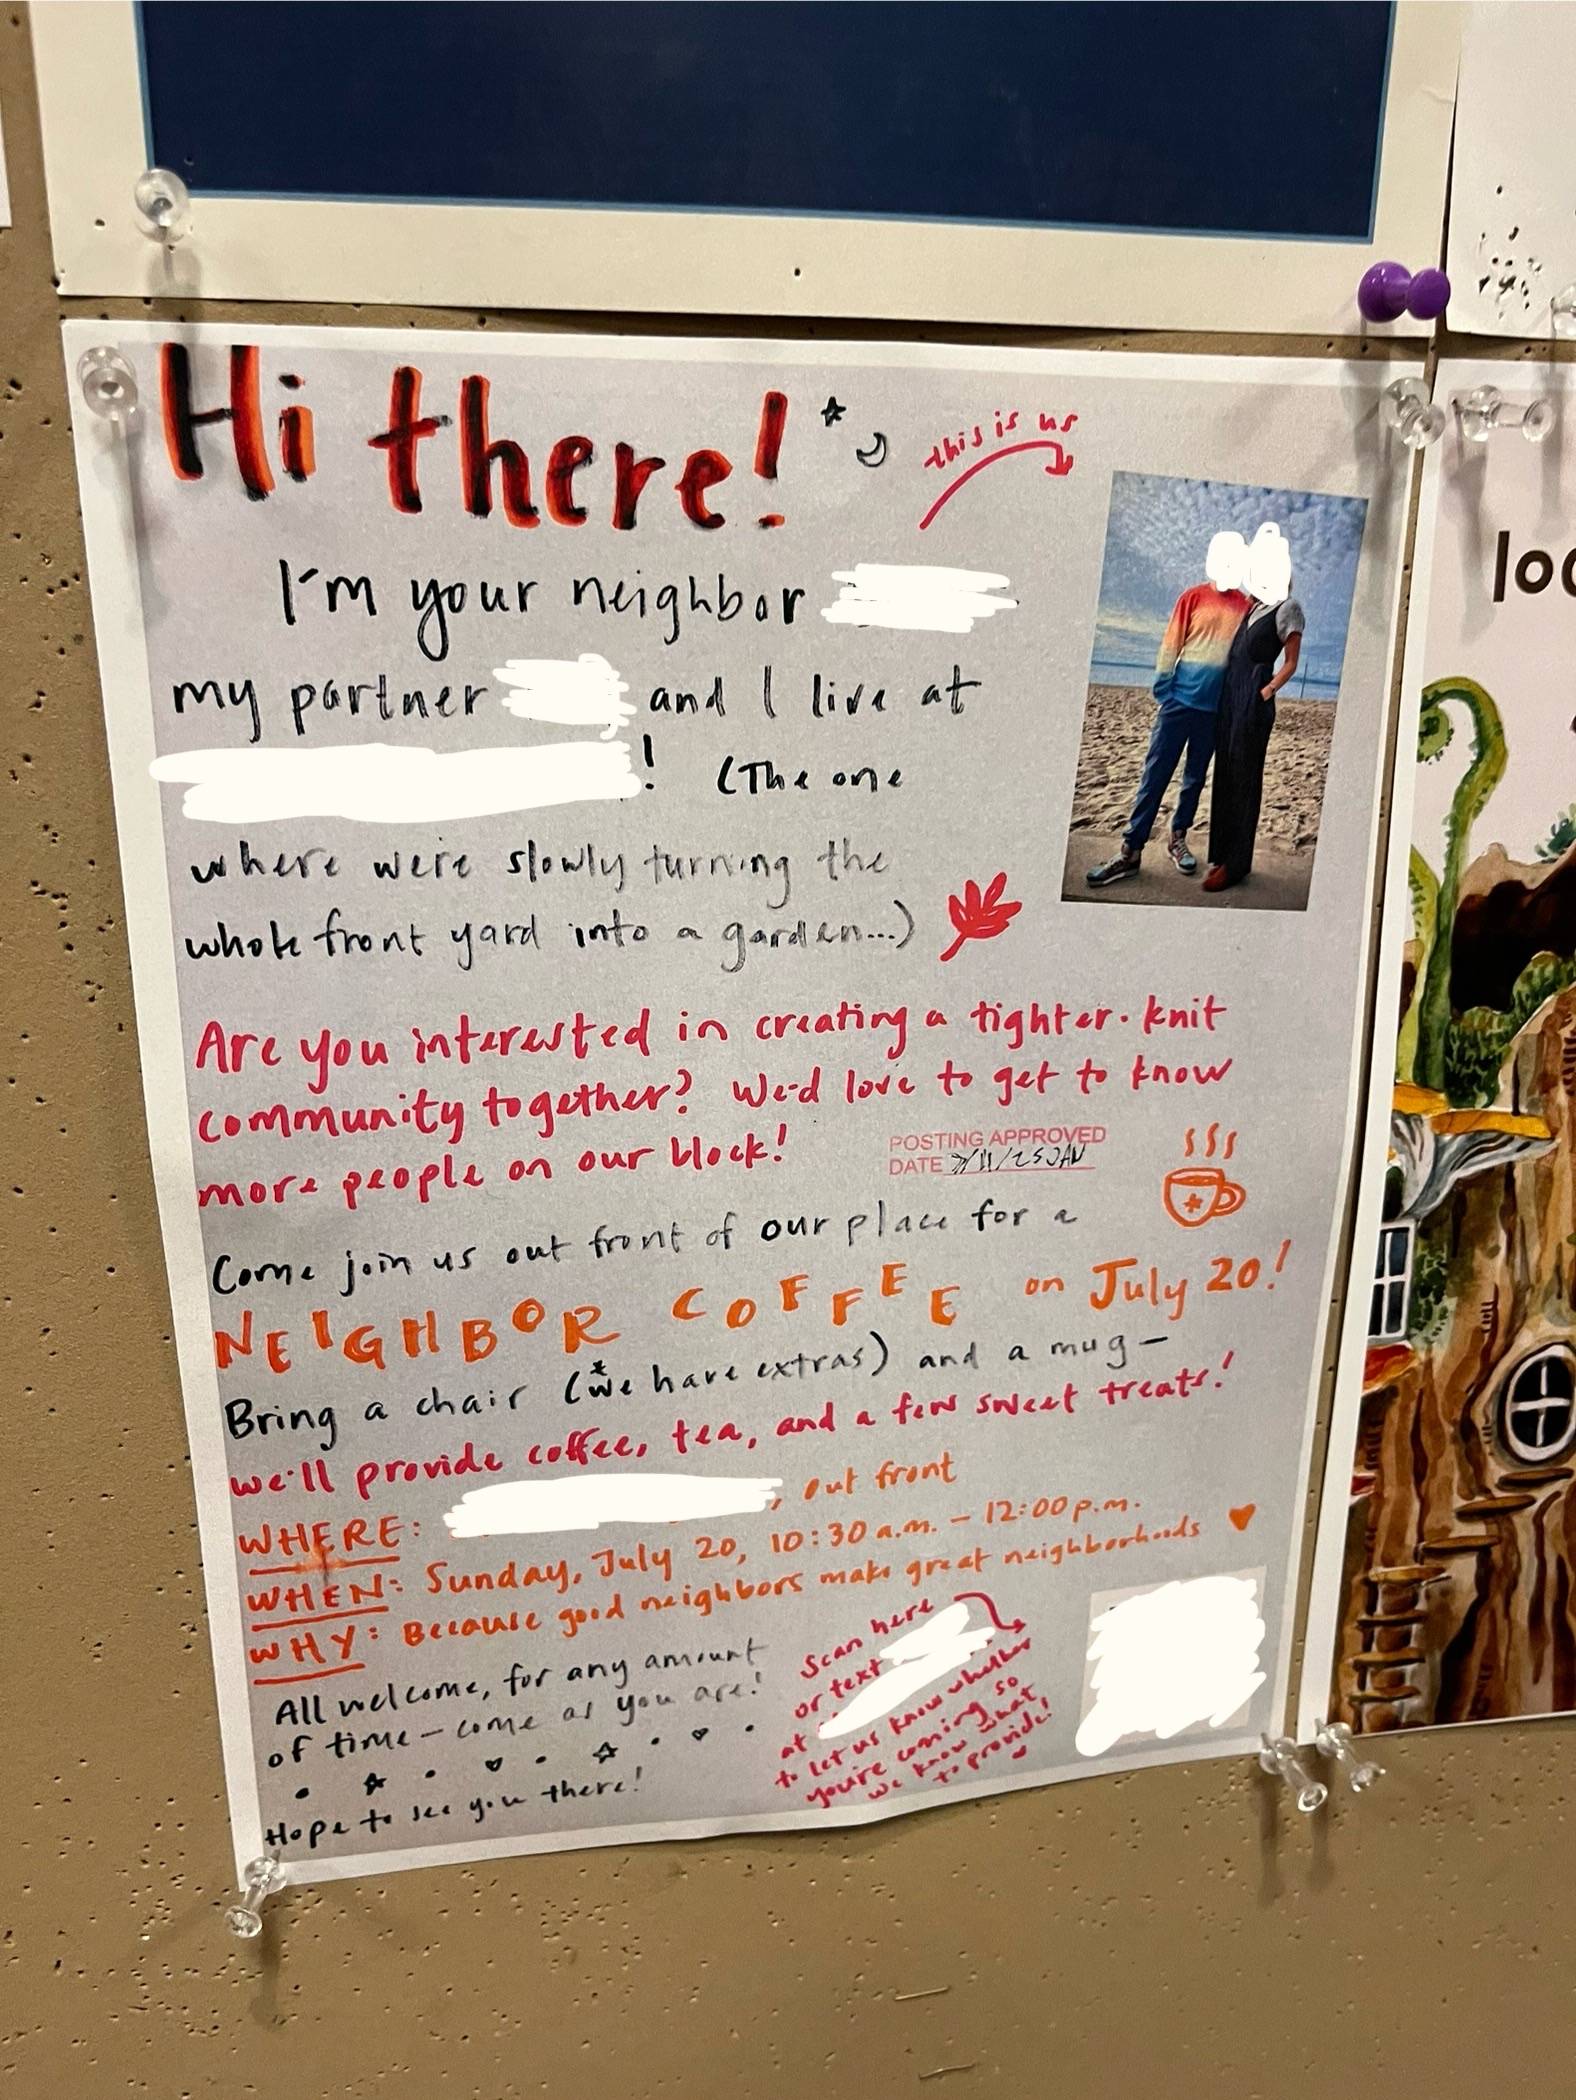 Hi there!
this is us
I'm your neighbor
my partner and I live at
! (The one
where we're slowly turning the
whole front yard into a garden...)
Are you interested in creating a tighter-knit
community together? We'd love to get to know
more people on our block!
POSTING APPROVED
DATE 7/11/25
Come join us out front of our place for a
NEIGHBOR COFFEE on July 20!
Bring a chair (*we have extras) and a mug—
we'll provide coffee, tea, and a few sweet treats!
WHERE: , out front
WHEN: Sunday, July 20, 10:30 a.m. – 12:00 p.m.
WHY: Because good neighbors make great neighborhoods
All welcome, for any amount
of time – come as you are!
Hope to see you there!
Scan here
or text
at
to let us know whether
you're coming so
we know what
to provide!